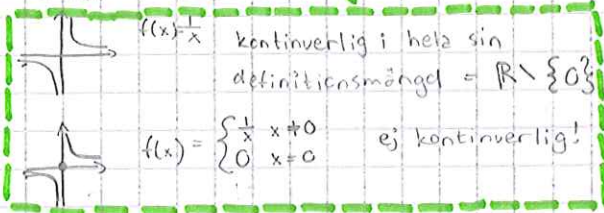 f(x)=1/x kontinuerlig i hela sin
definitionsmängd = ℝ \ {0}
f(x) = { 1/x x≠0 ej kontinuerlig!
0 x=0